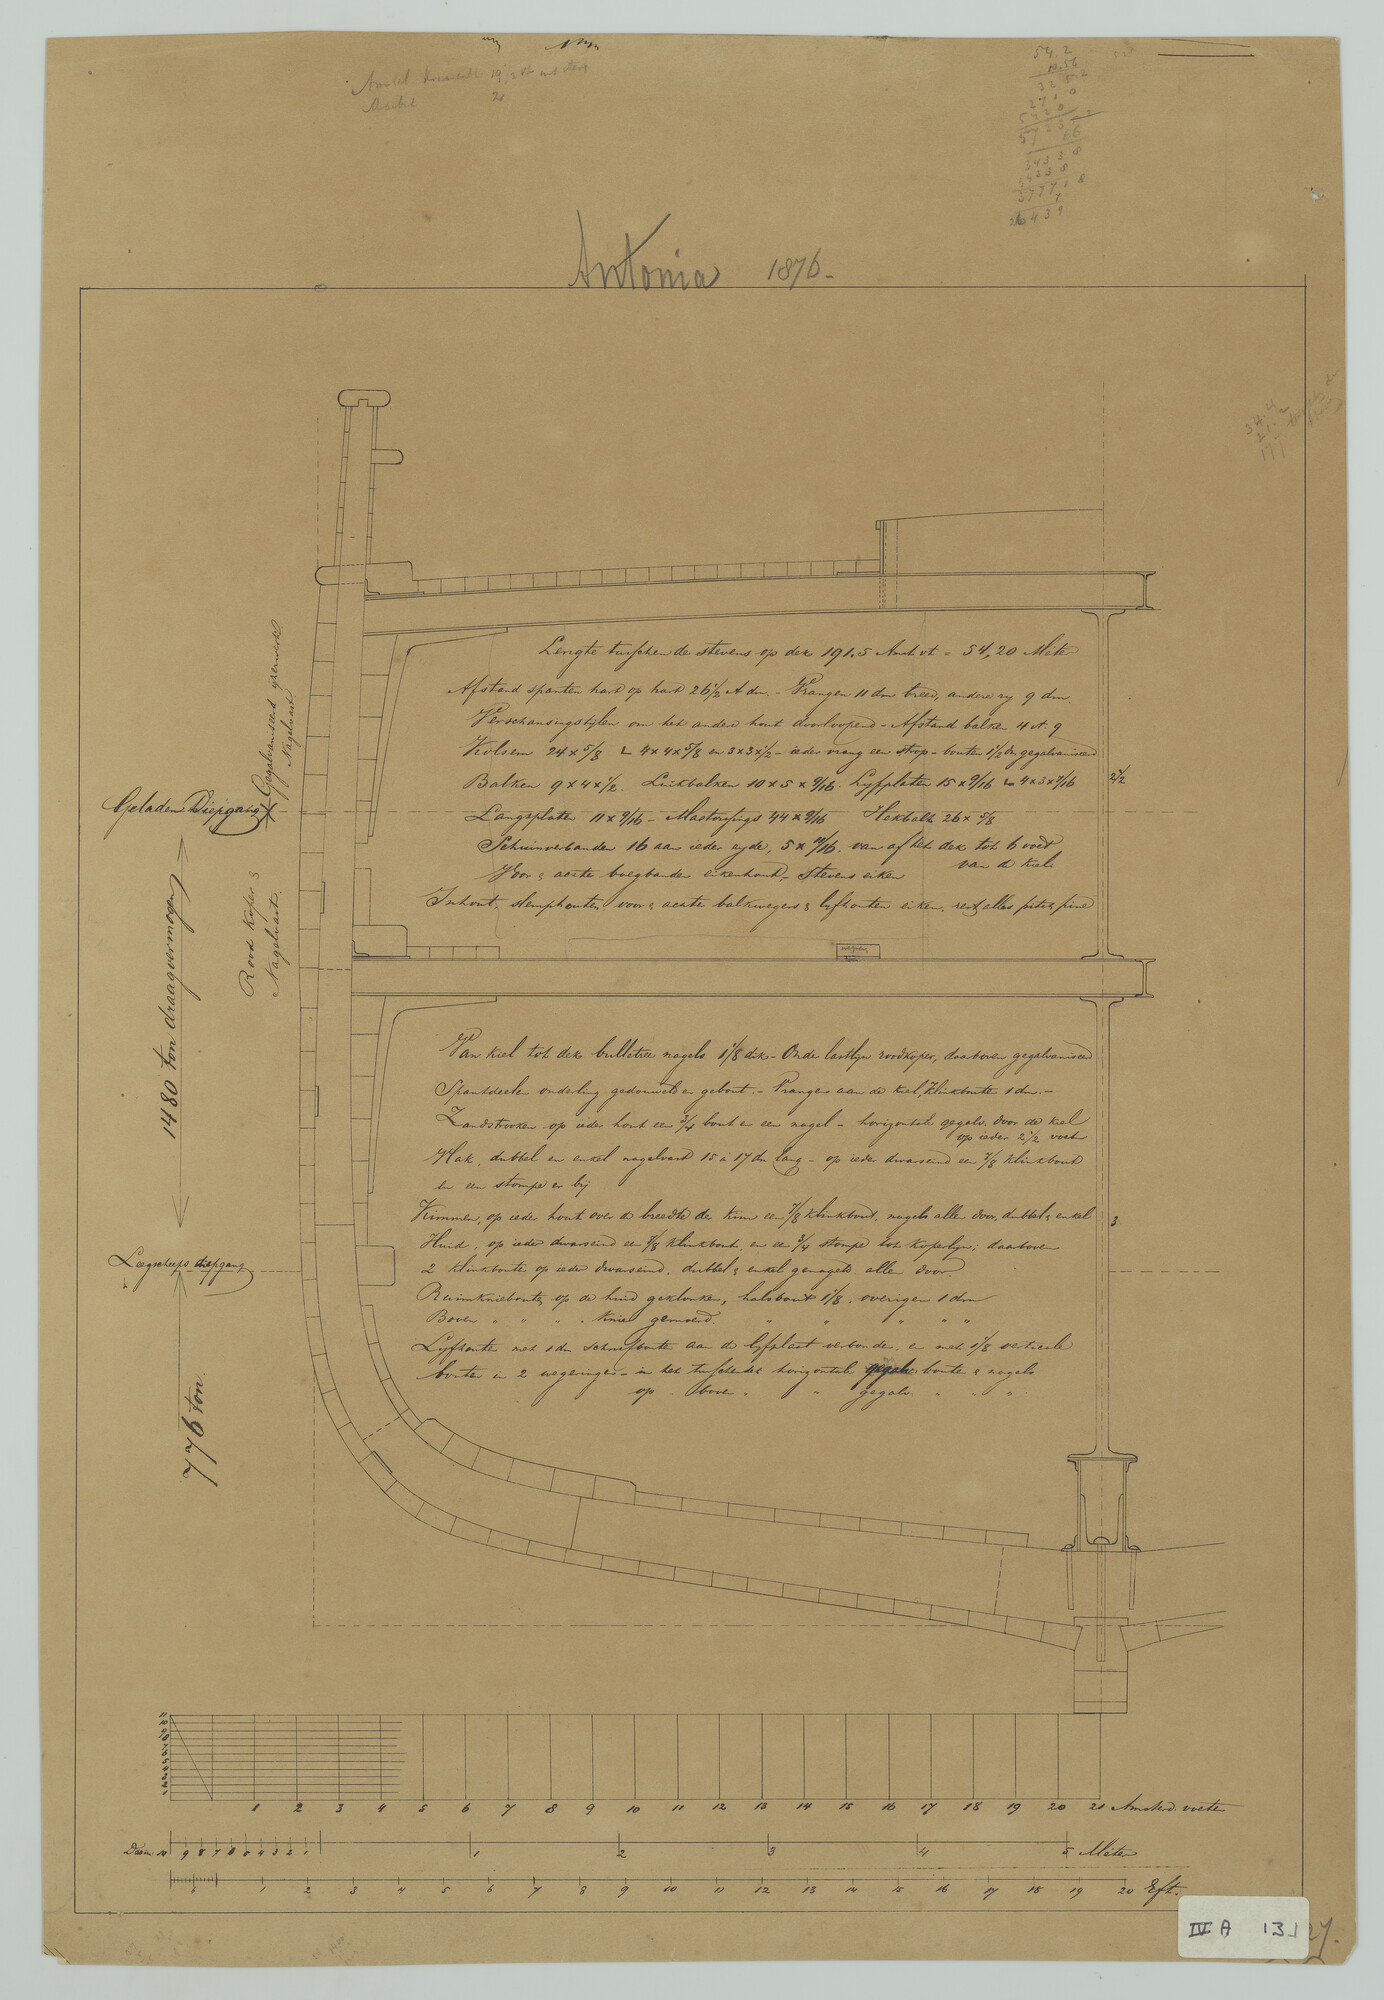 Antonia 1876
Lengte tusschen de stevens op dek 191.5 Amst vt = 54,20 Meter
Afstand spanten hart op hart 26 1/2 A dm. - Vrangen 11 dm breed, andere 9 dm.
Verschansingstijlen om het andere hout doorloopend - Afstand balken 4 vt 9
Kolsem 24 x 5/8 4 x 4 x 5/8 en 3 x 3 x 1/2 - ieder vrang een strop - bouten 1 1/2 dm gegalvaniseerd
Balken 9 x 4 x 1/2. Luikbalken 10 x 5 x 9/16. Lyfplaten 15 x 9/16 4 x 3 x 7/16
2 1/2
Geladen Diepgang
Langsplaten 11 x 9/16 - Mastvisschings 44 x 9/16 Hekbalk 26 x 5/8
Schuinverbanden 16 aan ieder zyde, 5 x 11/16. van af het dek tot 6 voet
van de kiel
Voor & achter boegbanden eikenhout. - Stevens eiken
Inhout, slemphouten, voor & achter balkwegers & lyfhouten eiken. rest alles pitch pine
Gegalvaniseerd yzerwerk
Nagelvast
Rood koper &
Nagelvast.
1480 ton draagvermogen
Van kiel tot dek bulletrie nagels 1 1/8 dik - Onder lastlyn roodkoper, daarboven gegalvaniseerd
Spantdeelen onderling gedouweld en gebout. - Vrangen aan de kiel, klinkbouten 1 dm. -
Zandstrooken op ieder hout een 3/4 bout en een nagel - horizontale gegalv. door de kiel
op ieder 2 1/2 voet
Vlak, dubbel en enkel nagelvast 15 à 17 dm lang - op ieder dwarseind een 7/8 klinkbout
en een stompe er bij
Kimmen, op ieder hout over de breedte der kim een 7/8 klinkbout, nagels allen door, dubbel & enkel
3
Huid, op ieder dwarseind een 7/8 klinkbout en een 3/4 stompe tot koperlyn; daarboven
2 klinkbouten op ieder dwarseind. dubbel & enkel genageld allen door.
Leegscheeps diepgang
Ruimkniebouten op de huid geklonken, halsbout 1 1/8. overigen 1 dm
Boven " " " Knie gemoerd. " " " " "
Lyfhouten met 1 dm schroefbouten aan de lyfplaat verbonden en met 1 1/8 verticale
bouten in 2 wegeringen - in het tusschendek horizontale bouten & nagels
op " boven " " gegalv. " " "
776 ton.
11 10 9 8 7 6 5 4 3 2 1
1 2 3 4 5 6 7 8 9 10 11 12 13 14 15 16 17 18 19 20 21 Amsterd. voeten
Decim. 10 9 8 7 6 5 4 3 2 1 1 2 3 4 5 Meter
1 2 3 4 5 6 7 8 9 10 11 12 13 14 15 16 17 18 19 20 Eft.
IV A 13.127.